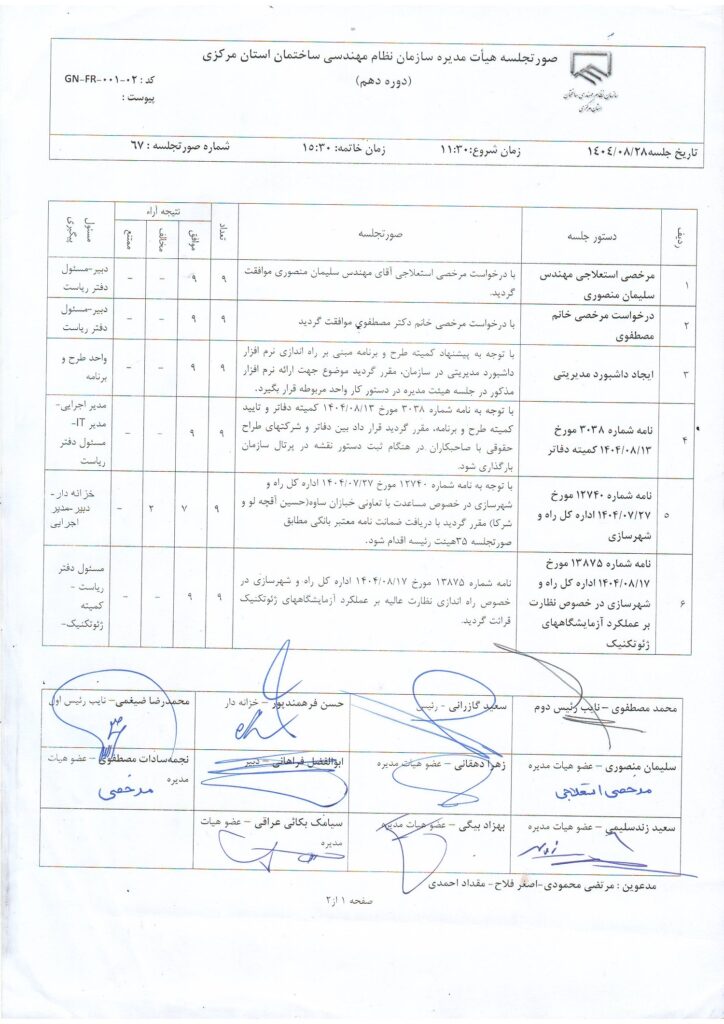 صورتجلسه هیأت مدیره سازمان نظام مهندسی ساختمان استان مرکزی
(دوره دهم)
کد : GN-FR-۰۰۱-۰۲
پیوست :
سازمان نظام مهندسی ساختمان
استان مرکزی
تاریخ جلسه۱۴۰۴/۰۸/۲۸
زمان شروع:۱۱:۳۰
زمان خاتمه: ۱۵:۳۰
شماره صورتجلسه : ۶۷
ردیف
دستور جلسه
صورتجلسه
تعداد
نتیجه آراء
موافق
مخالف
ممتنع
مسئول
پیگیری
۱
مرخصی استعلاجی مهندس
سلیمان منصوری
با درخواست مرخصی استعلاجی آقای مهندس سلیمان منصوری موافقت
گردید.
۹
۹
-
-
دبیر-مسئول
دفتر ریاست
۲
درخواست مرخصی خانم
مصطفوی
با درخواست مرخصی خانم دکتر مصطفوی موافقت گردید
۹
۹
-
-
دبیر-مسئول
دفتر ریاست
۳
ایجاد داشبورد مدیریتی
با توجه به پیشنهاد کمیته طرح و برنامه مبنی بر راه اندازی نرم افزار
داشبورد مدیریتی در سازمان، مقرر گردید موضوع جهت ارائه نرم افزار
مذکور در جلسه هیئت مدیره در دستور کار واحد مربوطه قرار بگیرد.
۹
۹
-
-
واحد طرح و
برنامه
۴
نامه شماره ۳۰۳۸ مورخ
۱۴۰۴/۰۸/۱۳ کمیته دفاتر
با توجه به نامه شماره ۳۰۳۸ مورخ ۱۴۰۴/۰۸/۱۳ کمیته دفاتر و تایید
کمیته طرح و برنامه، مقرر گردید قرار داد بین دفاتر و شرکتهای طراح
حقوقی با صاحبکاران در هنگام ثبت دستور نقشه در پرتال سازمان
بارگذاری شود.
۹
۹
-
-
مدیر اجرایی-
مدیر IT-
مسئول دفتر
ریاست
۵
نامه شماره ۱۲۷۴۰ مورخ
۱۴۰۴/۰۷/۲۷ اداره کل راه و
شهرسازی
با توجه به نامه شماره ۱۲۷۴۰ مورخ ۱۴۰۴/۰۷/۲۷ اداره کل راه و
شهرسازی در خصوص مساعدت با تعاونی خبازان ساوه(حسین آقچه لو و
شرکا) مقرر گردید با دریافت ضمانت نامه معتبر بانکی مطابق
صورتجلسه ۳۵هیئت رئیسه اقدام شود.
۹
۷
۲
-
خزانه دار-
دبیر-مدیر
اجرایی
۶
نامه شماره ۱۳۸۷۵ مورخ
۱۴۰۴/۰۸/۱۷ اداره کل راه و
شهرسازی در خصوص نظارت
بر عملکرد آزمایشگاههای
ژئوتکنیک
نامه شماره ۱۳۸۷۵ مورخ ۱۴۰۴/۰۸/۱۷ اداره کل راه و شهرسازی در
خصوص راه اندازی نظارت عالیه بر عملکرد آزمایشگاههای ژئوتکنیک
قرائت گردید.
۹
۹
-
-
مسئول دفتر
ریاست -
کمیته
ژئوتکنیک-
محمد مصطفوی – نایب رئیس دوم
سعید گازرانی - رئیس
حسن فرهمندپور – خزانه دار
محمدرضا ضیغمی – نایب رئیس اول
سلیمان منصوری – عضو هیات مدیره
مرخصی استعلاجی
زهرا دهقانی – عضو هیات مدیره
ابوالفضل فراهانی – دبیر
نجمه‌سادات مصطفوی – عضو هیات
مدیره
مرخصی
سعید زندسلیمی – عضو هیات مدیره
بهزاد بیگی – عضو هیات مدیره
سیامک بکائی عراقی – عضو هیات
مدیره
مدعوین : مرتضی محمودی-اصغر فلاح- مقداد احمدی
صفحه ۱ از۲